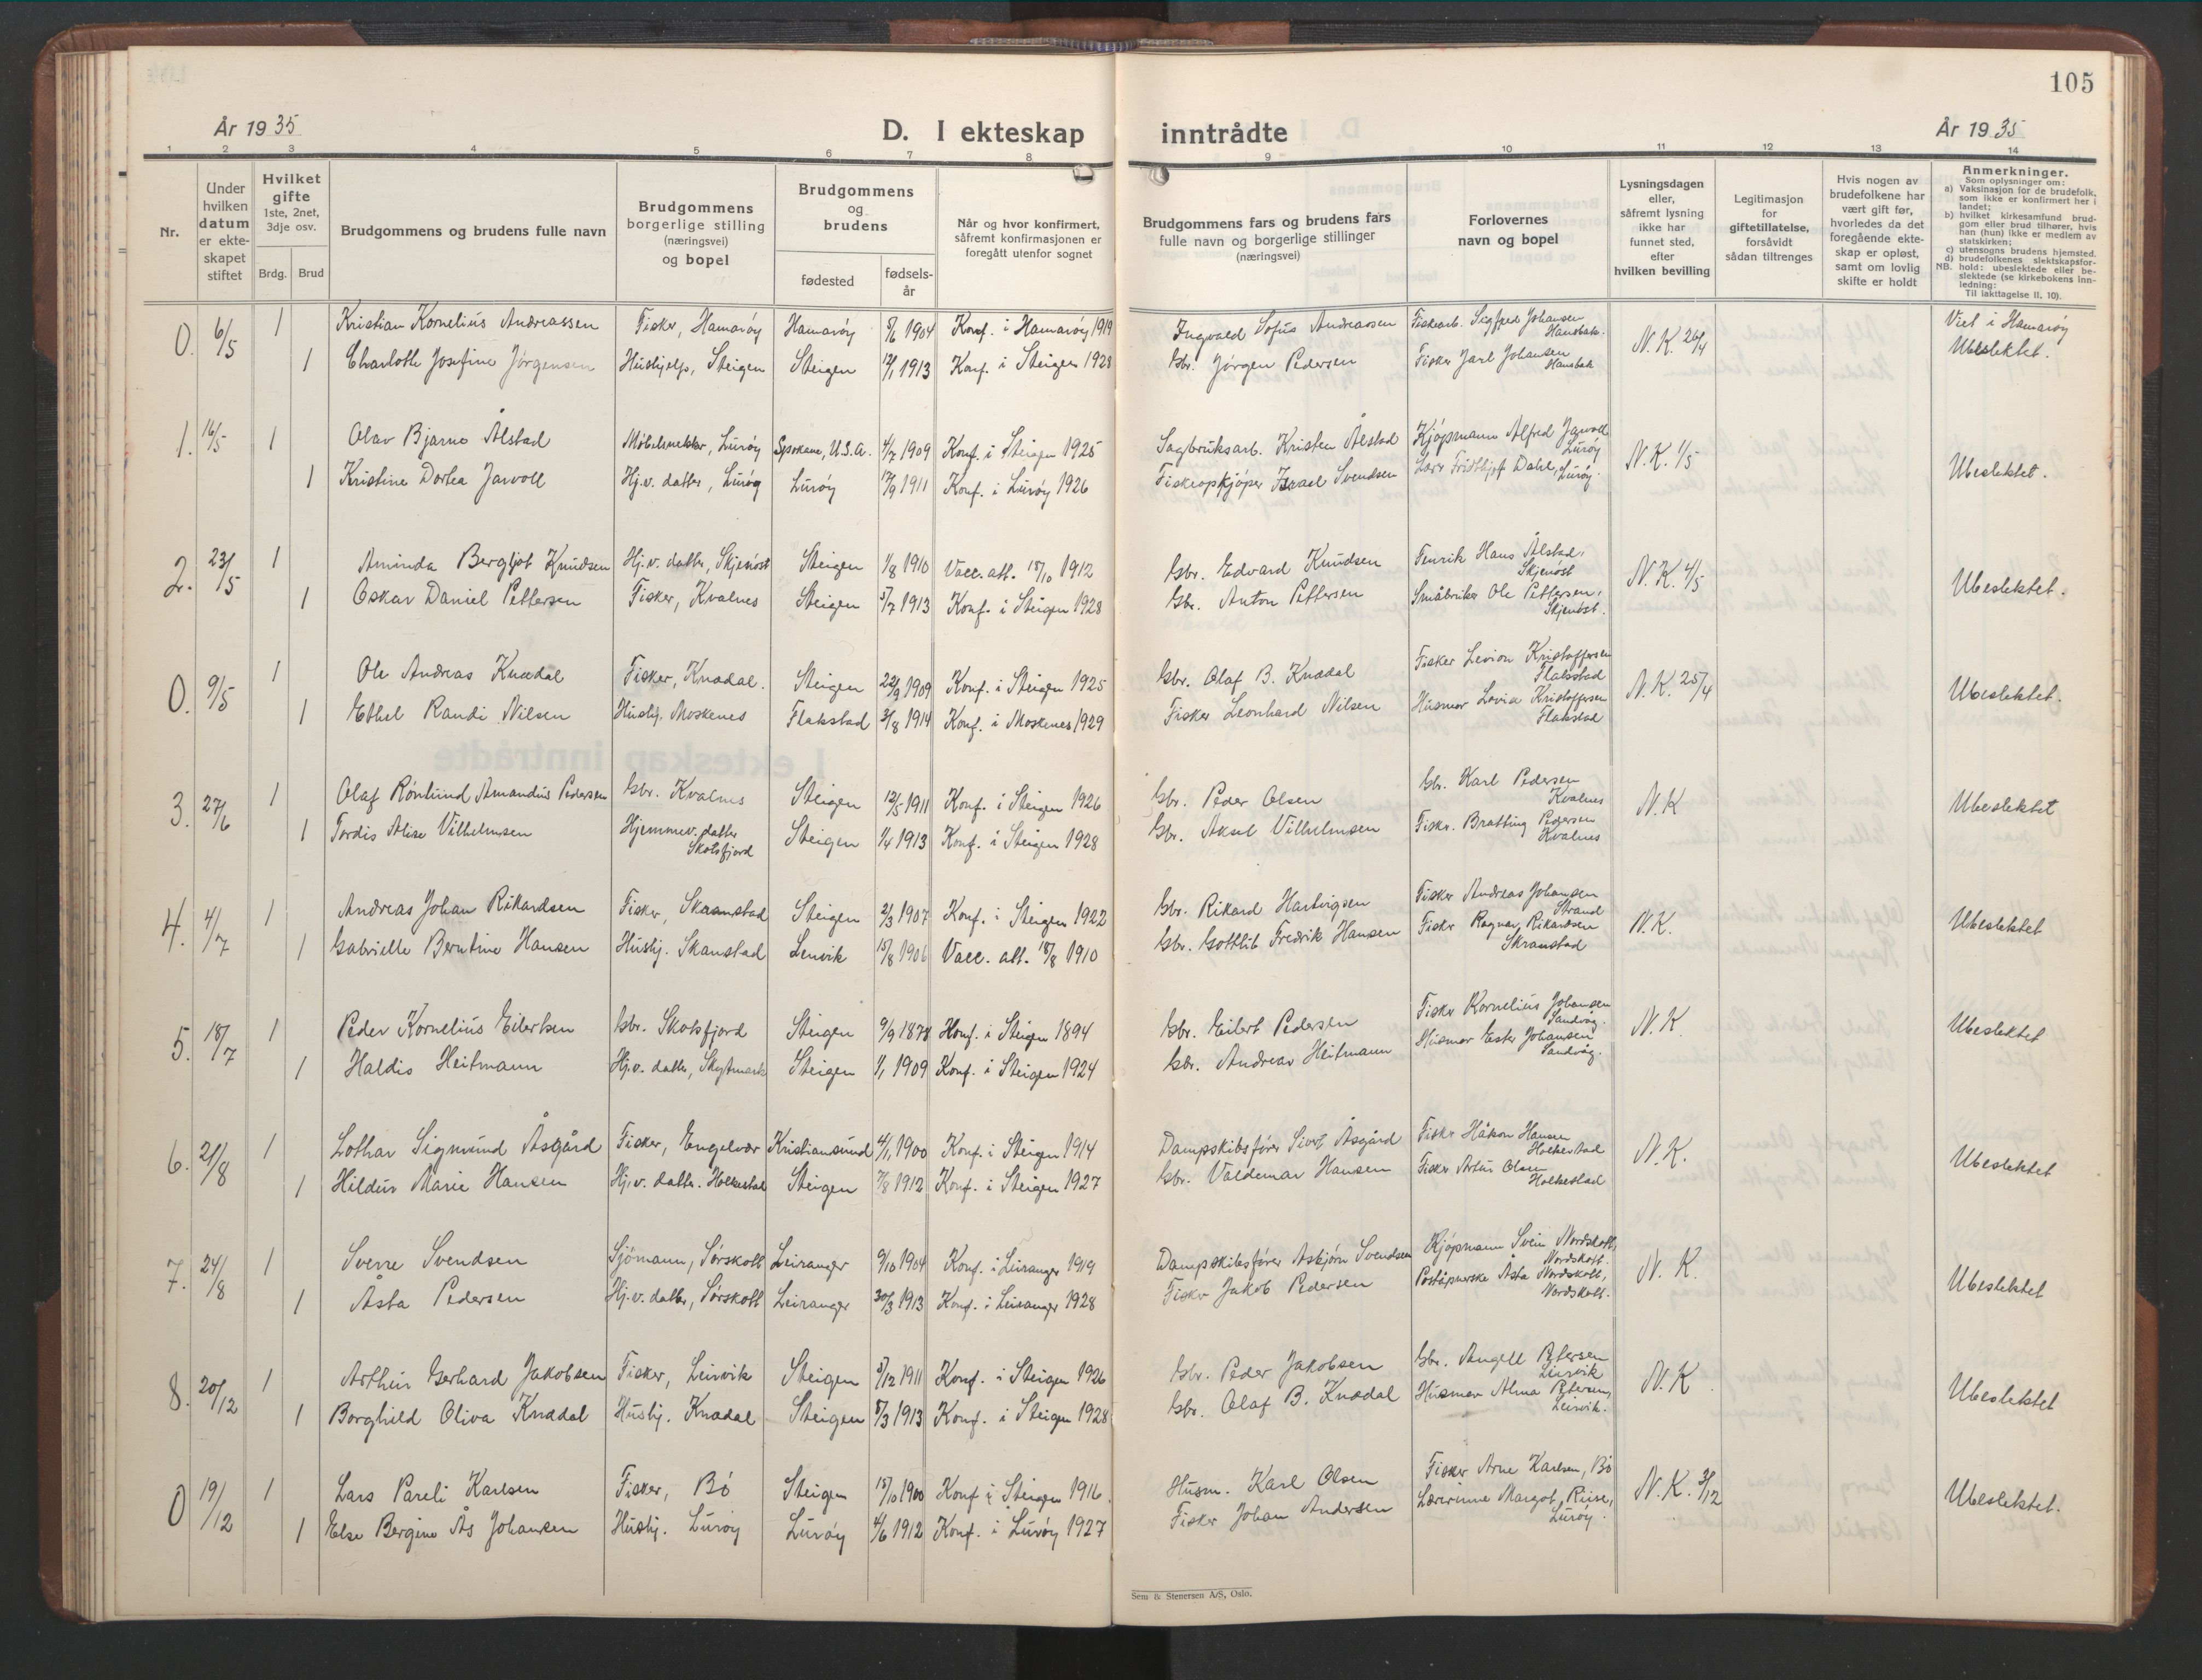 105
År 1935
D. I ekteskap inntrådte
År 1935
1 2 3 4 5 6 7 8 9 10 11 12 13 14
Nr.
Under hvilken datum er ekteskapet stiftet
Hvilket gifte 1ste, 2net, 3dje osv.
Brdg. Brud
Brudgommens og brudens fulle navn
Brudgommens borgerlige stilling (næringsvei) og bopel
Brudgommens og brudens
fødested
fødselsår
Når og hvor konfirmert, såfremt konfirmasjonen er foregått utenfor sognet
Brudgommens fars og brudens fars fulle navn og borgerlige stillinger (næringsvei)
Forlovernes navn og bopel
Lysningsdagen eller, såfremt lysning ikke har funnet sted, efter hvilken bevilling
Legitimasjon for giftetillatelse, forsåvidt sådan tiltrenges
Hvis nogen av brudefolkene har vært gift før, hvorledes da det foregående ekteskap er opløst, samt om lovlig skifte er holdt
Anmerkninger.
Som oplysninger om:
a) Vaksinasjon for de brudefolk, som ikke er konfirmert her i landet;
b) hvilket kirkesamfund brudgom eller brud tilhører, hvis han (hun) ikke er medlem av statskirken;
c) utensogns brudens hjemsted.
d) brudefolkenes slektskapsforhold: ubeslektede eller beslektede (se kirkebokens innledning:
NB.
Til iakttagelse II. 10).
0. 6/5 1 Kristian Kornelius Andreassen Fisker, Hamarøy Hamarøy 5/6 1904 Konf. i Hamarøy 1919 Ingvald Sofus Andreassen Fiskearb. Sigfred Johansen Hansbak. N.K. 26/4 Viet i Hamarøy
1 Charlotte Josefine Jörgensen Hushjelp, Steigen Steigen 12/1 1913 Konf. i Steigen 1928 Gbr. Jörgen Pedersen Fisker Jarl Johansen Hansbak Ubeslektet.
1. 16/5 1 Olav Bjarne Ålstad Møbelsnekker, Lurøy Spokane, U.S.A. 4/7 1909 Konf. i Steigen 1925 Sagbruksarb. Kristen Ålstad Kjøpmann Alfred Jarvoll Lurøy N.K. 1/5
1 Kristine Dortea Jarvoll Hj.v. datter, Lurøy Lurøy 17/9 1911 Konf. i Lurøy 1926 Fiskeopkjøper Israel Svendsen Lærer Fridthjof Dahl, Lurøy. Ubeslektet.
2. 23/5 1 Aminda Bergljot Knudsen Hj.v. datter, Skjenöst Steigen 1/8 1910 Vacc. att. 15/10 1912 Gbr. Edvard Knudsen Fenrik Hans Ålstad, Skjenöst N.K. 4/5
1 Oskar Daniel Pettersen Fisker, Kvalnes Steigen 5/7 1913 Konf. i Steigen 1928 Gbr. Anton Pettersen Småbruker Ole Pettersen, Skjenöst. Ubeslektet.
0. 9/5 1 Ole Andreas Knædal Fisker, Knædal. Steigen 22/9 1909 Konf. i Steigen 1925 Gbr. Olaf B. Knædal Fisker Levion Kristoffersen Flakstad N.K. 25/4
1 Ethel Randi Nilsen Hushj. Moskenes Flakstad 3/8 1914 Konf. i Moskenes 1929 Fisker Leonhard Nilsen Husmor Lovia Kristoffersen Flakstad Ubeslektet.
3. 27/6 1 Olaf Rönlund Amandus Pedersen Gbr. Kvalnes Steigen 12/5 1911 Konf. i Steigen 1926 Gbr. Peder Olsen Gbr. Karl Pedersen Kvalnes N.K
1 Tordis Alise Vilhelmsen Hjemmev. datter Skotsfjord Steigen 1/4 1913 Konf. i Steigen 1928 Gbr. Aksel Vilhelmsen Fisker. Bratting Pedersen Kvalnes Ubeslektet
4. 4/7 1 Andreas Johan Rikardsen Fisker, Skaanstad Steigen 2/3 1907 Konf. i Steigen 1922 Gbr. Rikard Hartvigsen Fisker Andreas Johansen Strand N.K.
1 Gabrielle Berntine Hansen Hushj. Skanstad Lenvik 15/8 1906 Vacc. att. 18/8 1910 Gbr. Gottlib Fredrik Hansen Fisker Ragnar Rikardsen Skranstad Ubeslektet
5. 18/7 1 Peder Kornelius Eilertsen Gbr. Skotsfjord Steigen 9/9 1878 Konf. i Steigen 1894 Gbr. Eilert Pedersen Fisker Kornelius Johansen Sandvåg. N.K.
1 Haldis Heitmann Hj.v. datter, Skytmark Steigen 1/1 1909 Konf. i Steigen 1924 Gbr. Andreas Heitmann Husmor Ester Johansen Sandvåg. Ubeslektet
6. 21/8 1 Lothar Sigmund Åsgård Fisker, Engelvær Kristiansund 4/1 1900 Konf. i Steigen 1914 Dampskibsfører Sivert Åsgård Fisker Håkon Hansen Holkestad N.K.
1 Hildur Marie Hansen Hj.v. datter. Holkestad Steigen 7/8 1912 Konf. i Steigen 1927 Gbr. Valdemar Hansen Fisker Artur Olsen Holkestad Ubeslektet
7. 24/8 1 Sverre Svendsen Sjömann, Sørskott Leiranger 9/10 1904 Konf. i Leiranger 1919 Dampskibsfører Asbjørn Svendsen Kjøpmann Svein Nordskott, Nordskott. N. K.
1 Åsta Pedersen Hj.v. datter, Sørskott Leiranger 30/3 1913 Konf. i Leiranger 1928 Fisker Jakob Pedersen Poståpnerske Åsta Nordskott, Nordskott. Ubeslektet
8. 20/12 1 Arthur Gerhard Jakobsen Fisker, Leirvik Steigen 5/12 1911 Konf. i Steigen 1926 Gbr. Peder Jakobsen Gbr. Angell Petersen Leirvik N.K.
1 Borghild Oliva Knædal Hushj. Knædal Steigen 5/3 1913 Konf. i Steigen 1928 Gbr. Olaf B. Knædal Husmor Alma Petersen, Leirvik. Ubeslektet
0 19/12 1 Lars Pareli Karlsen Fisker, Bö Steigen 15/10 1900 Konf i Steigen 1916. Husm. Karl Olsen Fisker Arne Karlsen, Bö N.K. 3/12
1 Else Bergine Ås Johansen Hushj. Lurøy Lurøy 4/6 1912 Konf. i Lurøy 1927 Fisker Johan Andersen Lærerinne Margot Riise, Lurøy. Ubeslektet.
Sem & Stenersen A/S, Oslo.